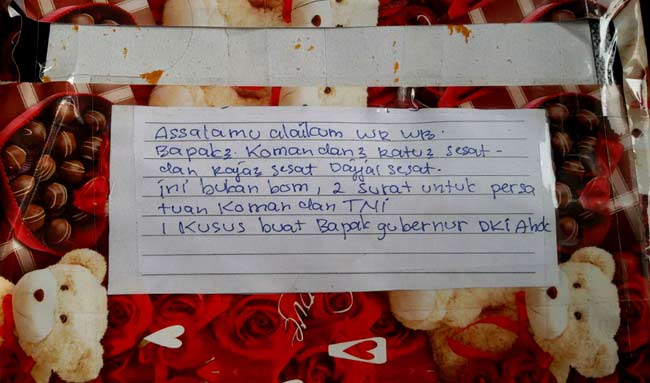 Assalamu alaikum WR WB.
Bapak2. Komandan2 Ratu2 sesat -
dan Raja2 sesat Dajjal sesat.
ini bukan bom, 2 surat untuk persa
tuan Komandan TNI
1 Kusus buat Bapak gubernur DKI Ahok